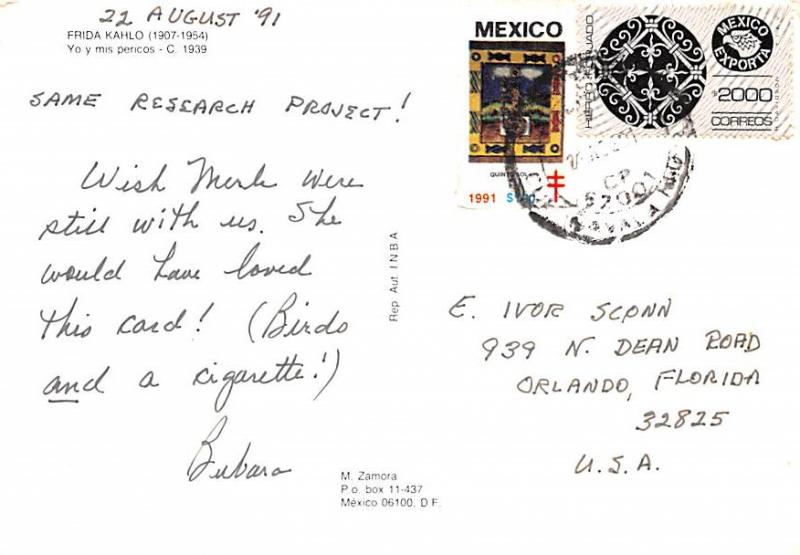 22 AUGUST '91
FRIDA KAHLO (1907-1954)
Yo y mis pericos - C. 1939
SAME RESEARCH PROJECT!
Wish Merle were
still with us. She
would have loved
this card! (Birds
and a cigarette!)
Barbara
Rep Aut INBA
M. Zamora
P.o. box 11-437
México 06100, D.F.
MEXICO
1991
HIERRO FORJADO
MEXICO
EXPORTA
$2000
CORREOS
CP
E. IVOR SCONN
939 N. DEAN ROAD
ORLANDO, FLORIDA
32825
U.S.A.